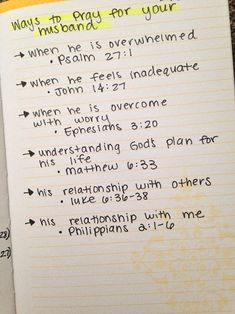 Ways to Pray for your
husband:
→ when he is overwhelmed
• Psalm 27:1
→ when he feels inadequate
• John 14:27
→ when he is overcome
with worry
• Ephesians 3:20
→ understanding Gods plan for
his life
• matthew 6:33
→ his relationship with others
• luke 6:36-38
→ his relationship with me
• Philippians 2:1-6